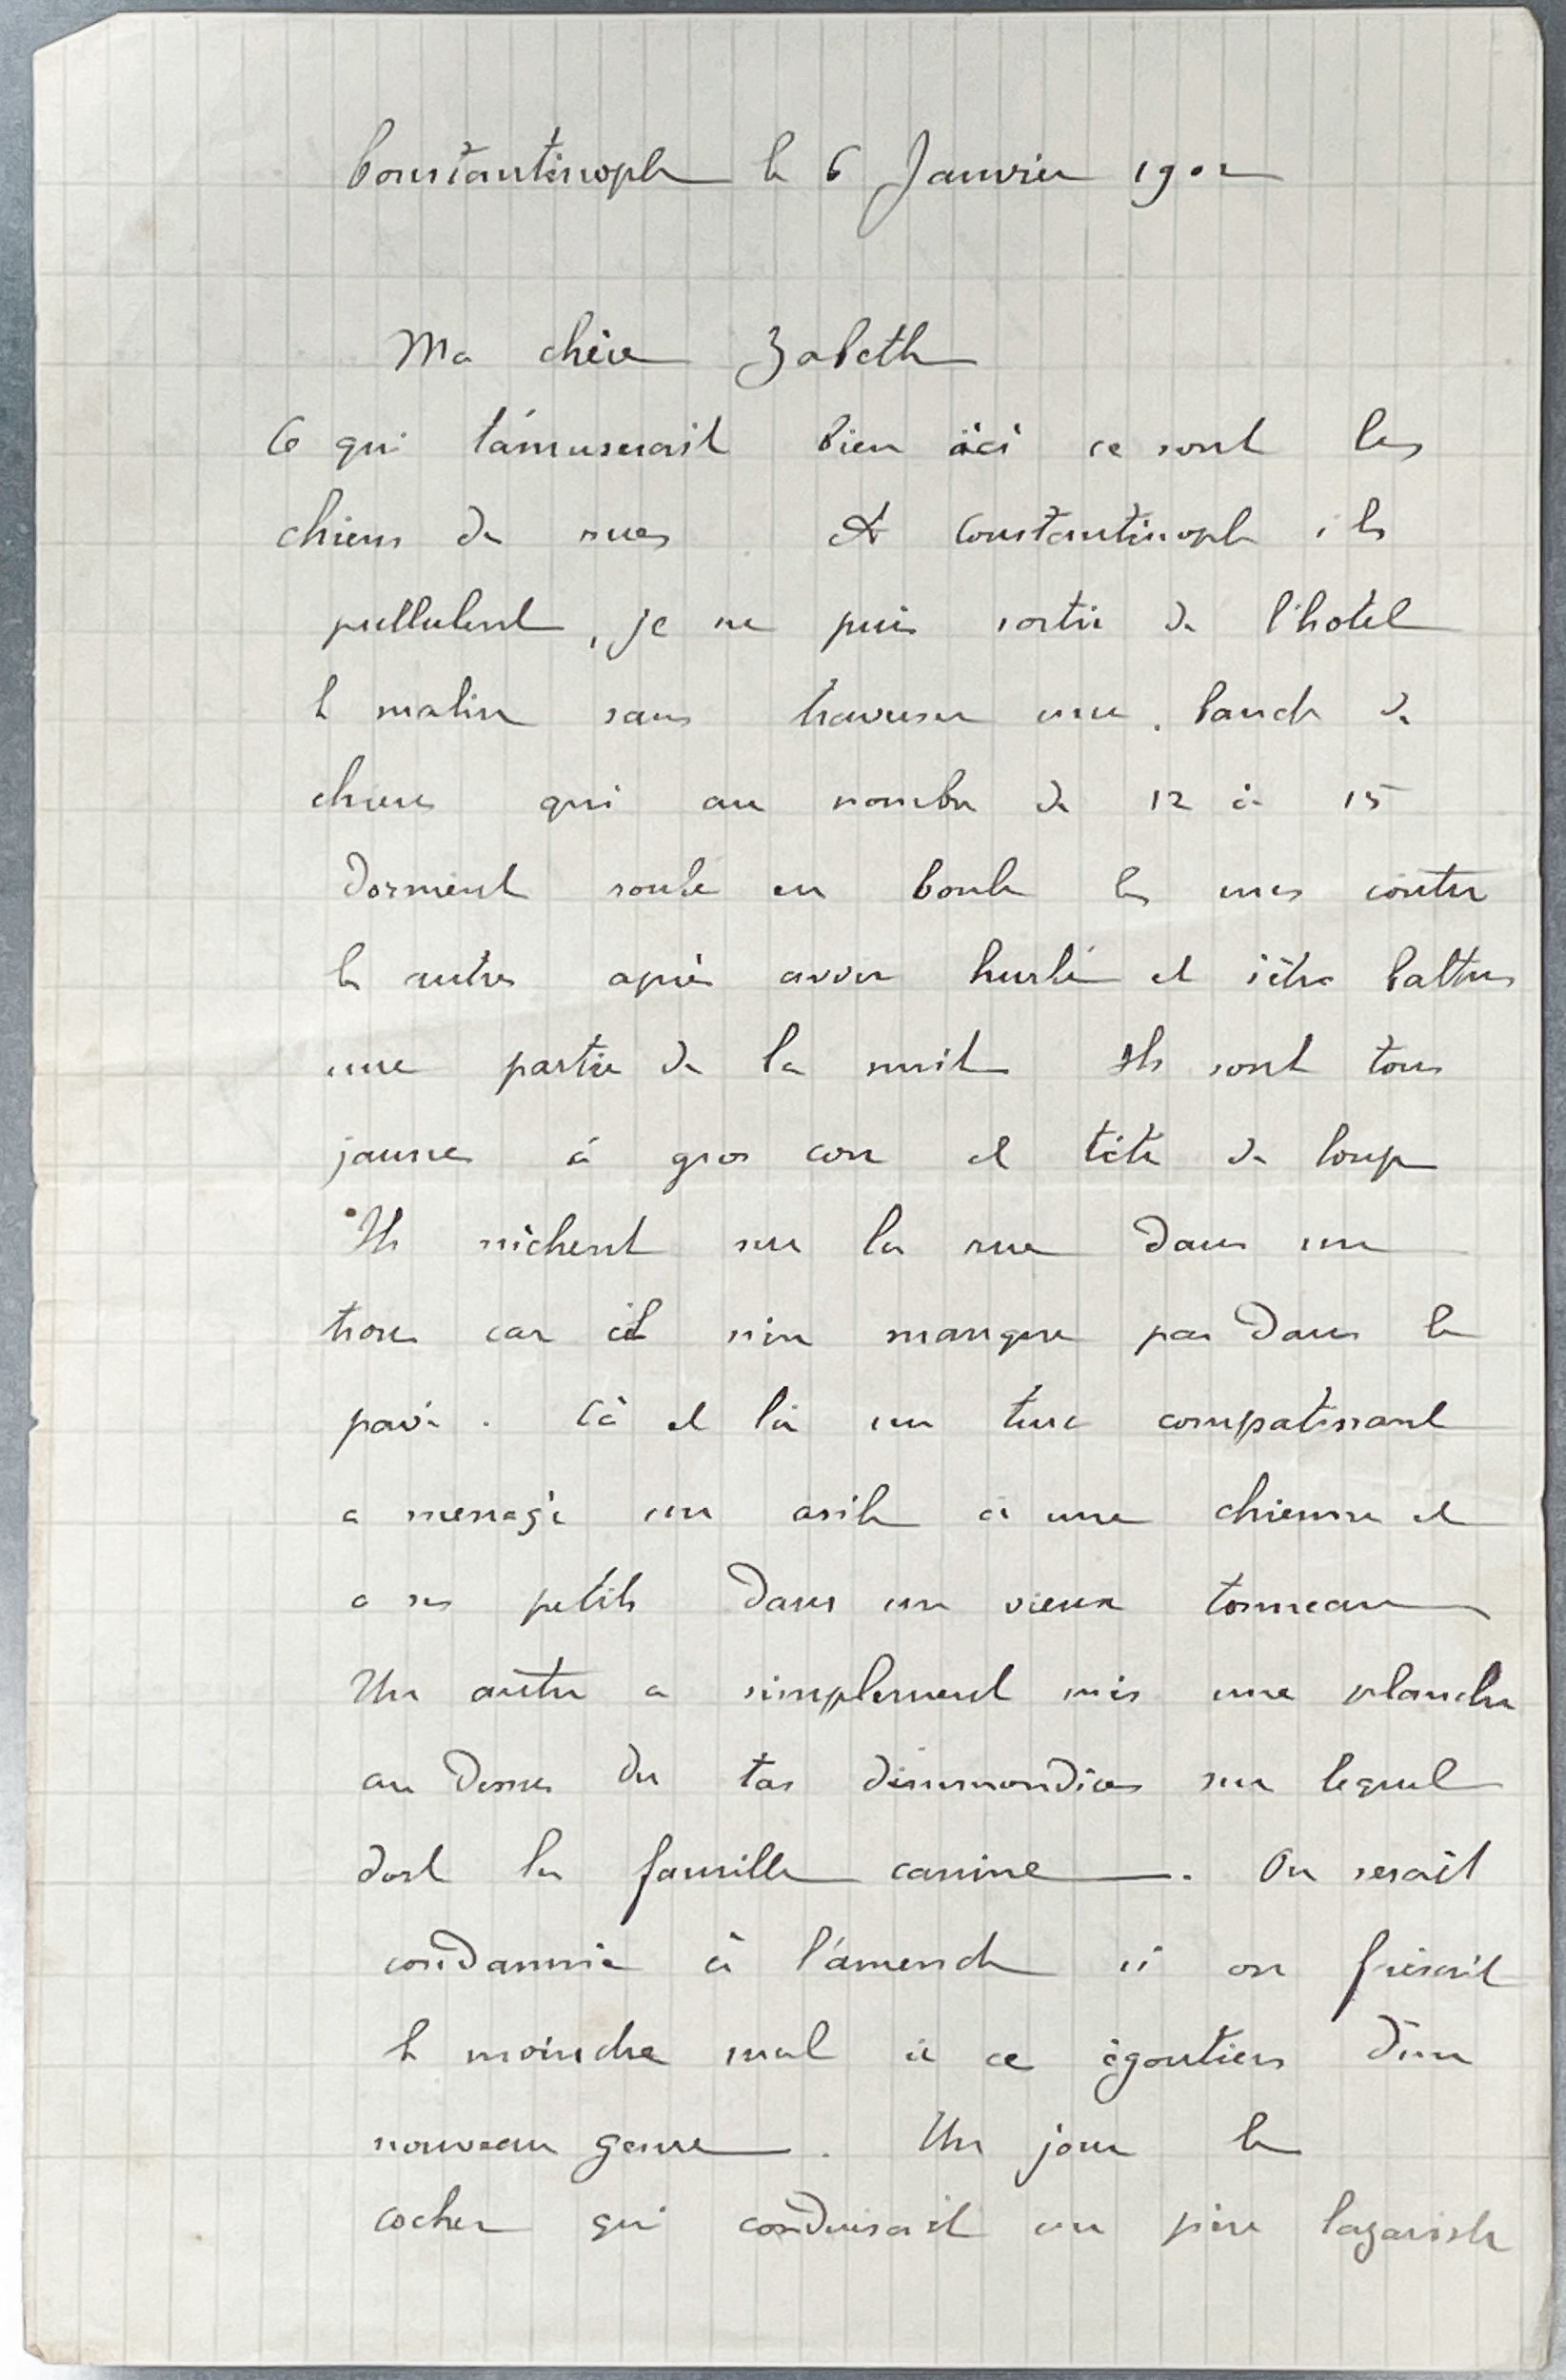 Constantinople le 6 Janvier 1902
Ma chère Zabeth
Ce qui t'amuserait bien ici ce sont les
chiens de rues A Constantinople ils
pullulent, je ne puis sortir de l'hotel
le matin sans traverser une bande de
chiens qui au nombre de 12 à 15
dorment roulé en boule les uns contre
les autres après avoir hurlé et s'être battus
une partie de la nuit Ils sont tous
jaunes à gros cou et tête de loup
Ils nichent sur la rue dans un
trou car il n'en manque pas dans le
pavé. Cà et là un turc compatissant
a menagé un asile à une chienne et
a ses petits dans un vieux tonneau
Un autre a simplement mis une planche
au dessus du tas d'immondices sur lequel
dort la famille canine. On serait
condamné à l'amende si on faisait
le moindre mal à ce égoutiers d'un
nouveau genre. Un jour le
cocher qui conduisait un père lazariste